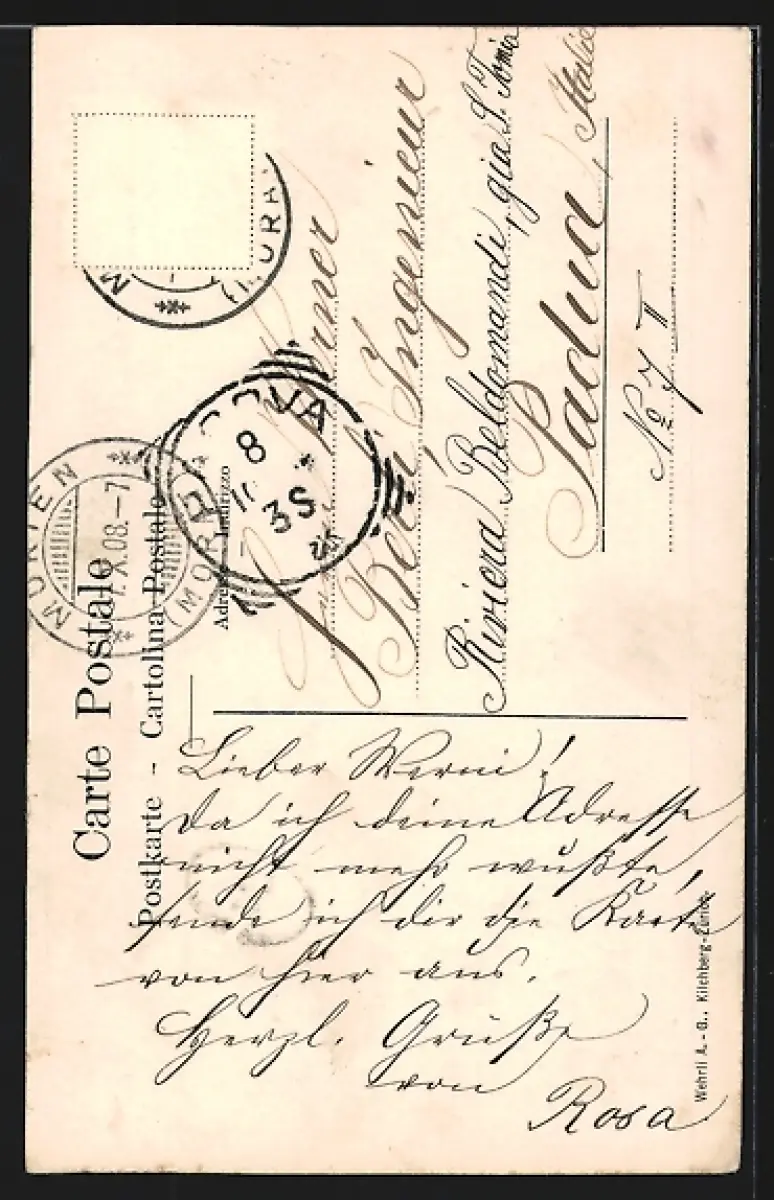 Carte Postale
Postkarte - Cartolina Postale
Indirizzo
MURTEN
X.08.-7
(MORAT)
8
3S
Ingenieur
Riviera Beldomandi, già S. Tomio
Padua, Italie
No 7 II
Lieber Werni!
Da ich deine Adresse
nicht mehr wußte,
sende ich dir die Karte
von hier aus.
Herzl. Grüße
von
Rosa
Wehrli A.-G., Kilchberg-Zürich